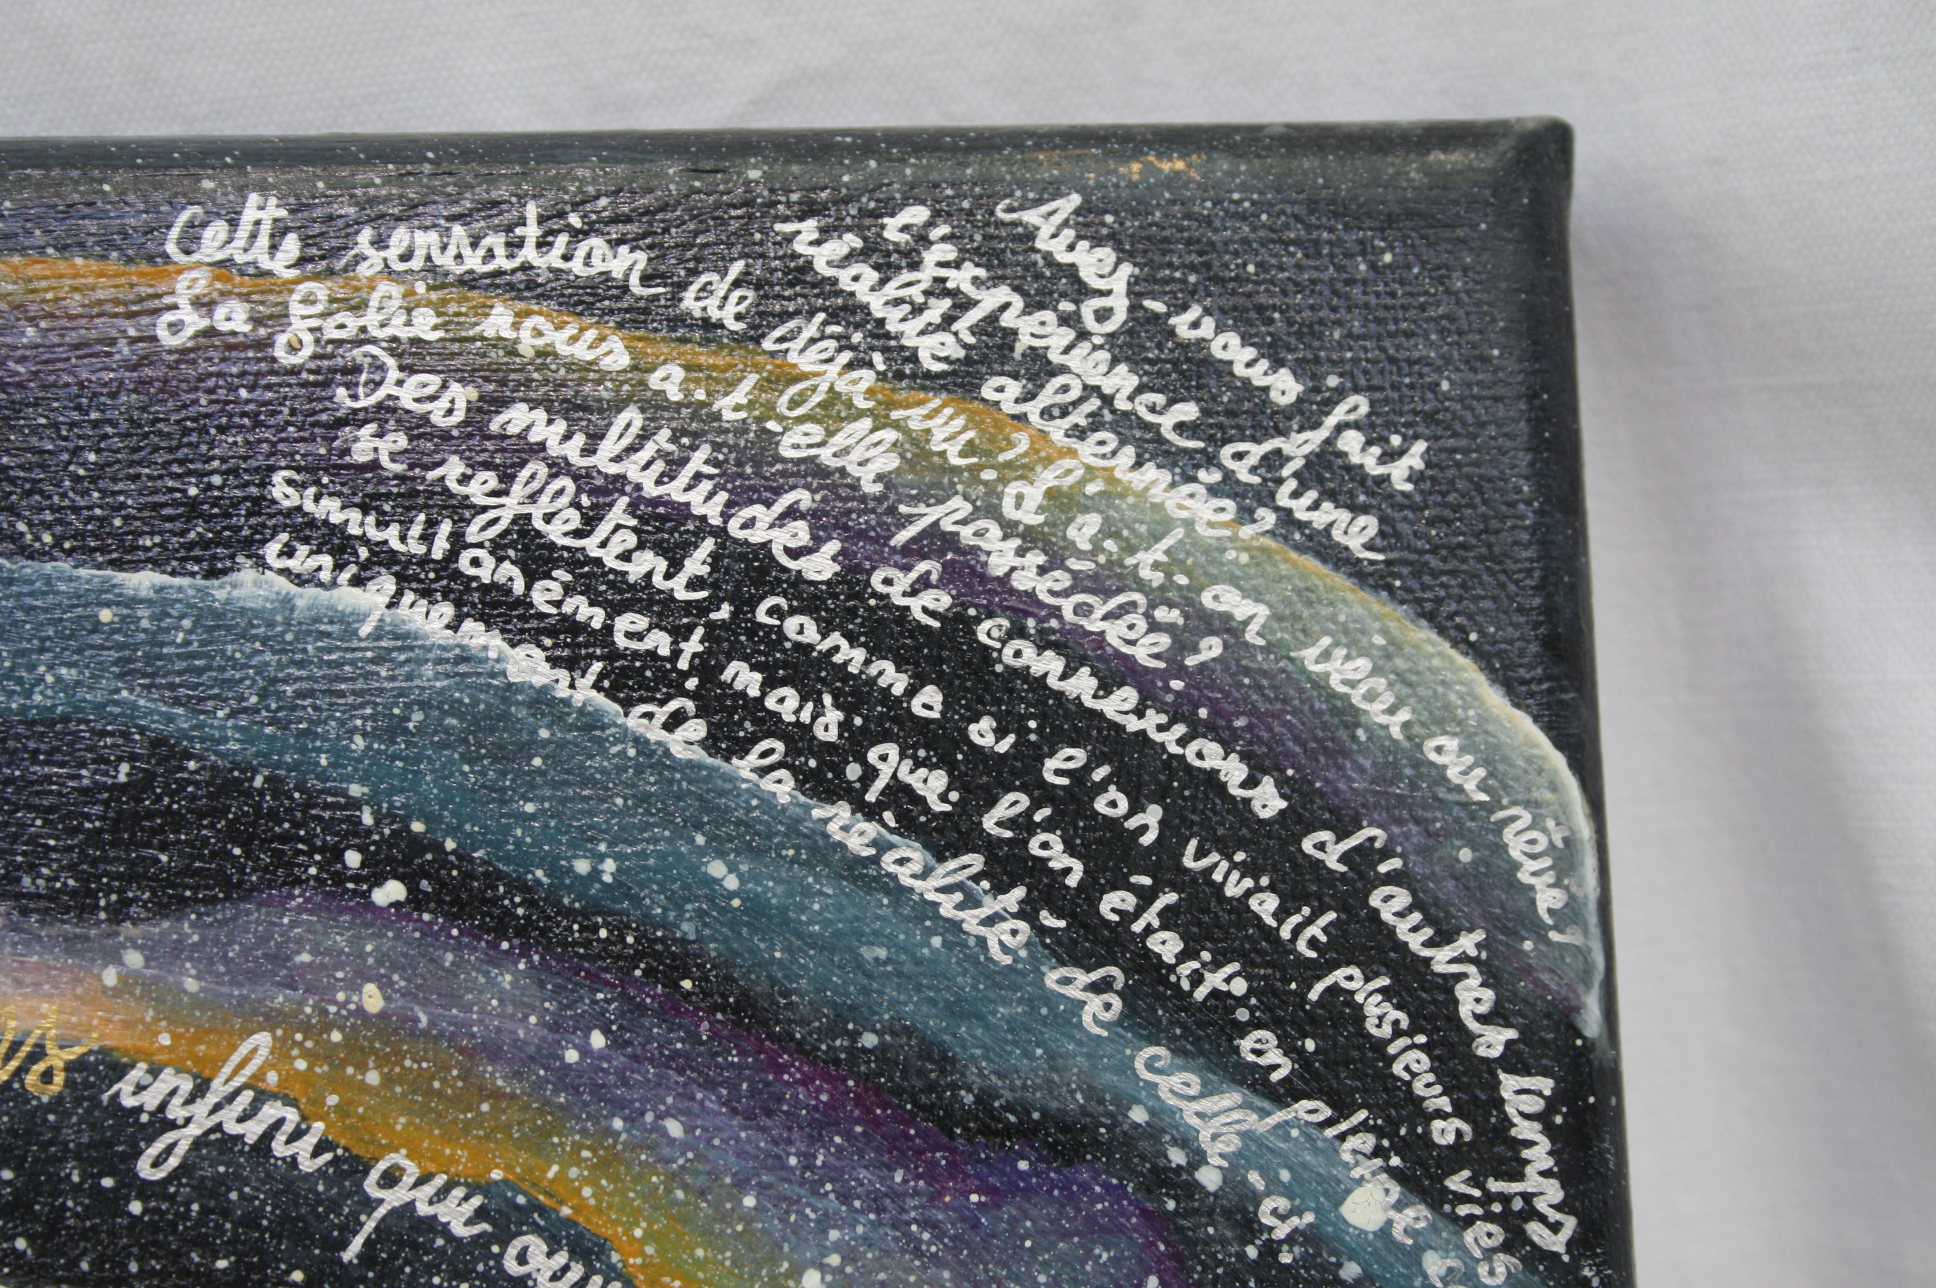 Avez-vous fait
l'expérience d'une
réalité alternée?
Cette sensation de déjà vu? L'a-t-on vécu ou rêvé?
La folie nous a-t-elle possédée?
Des multitudes de connexions d'autres temps
se reflètent, comme si l'on vivait plusieurs vies
simultanément mais que l'on était en pleine
uniquement de la réalité de celle-ci.
es infini qui